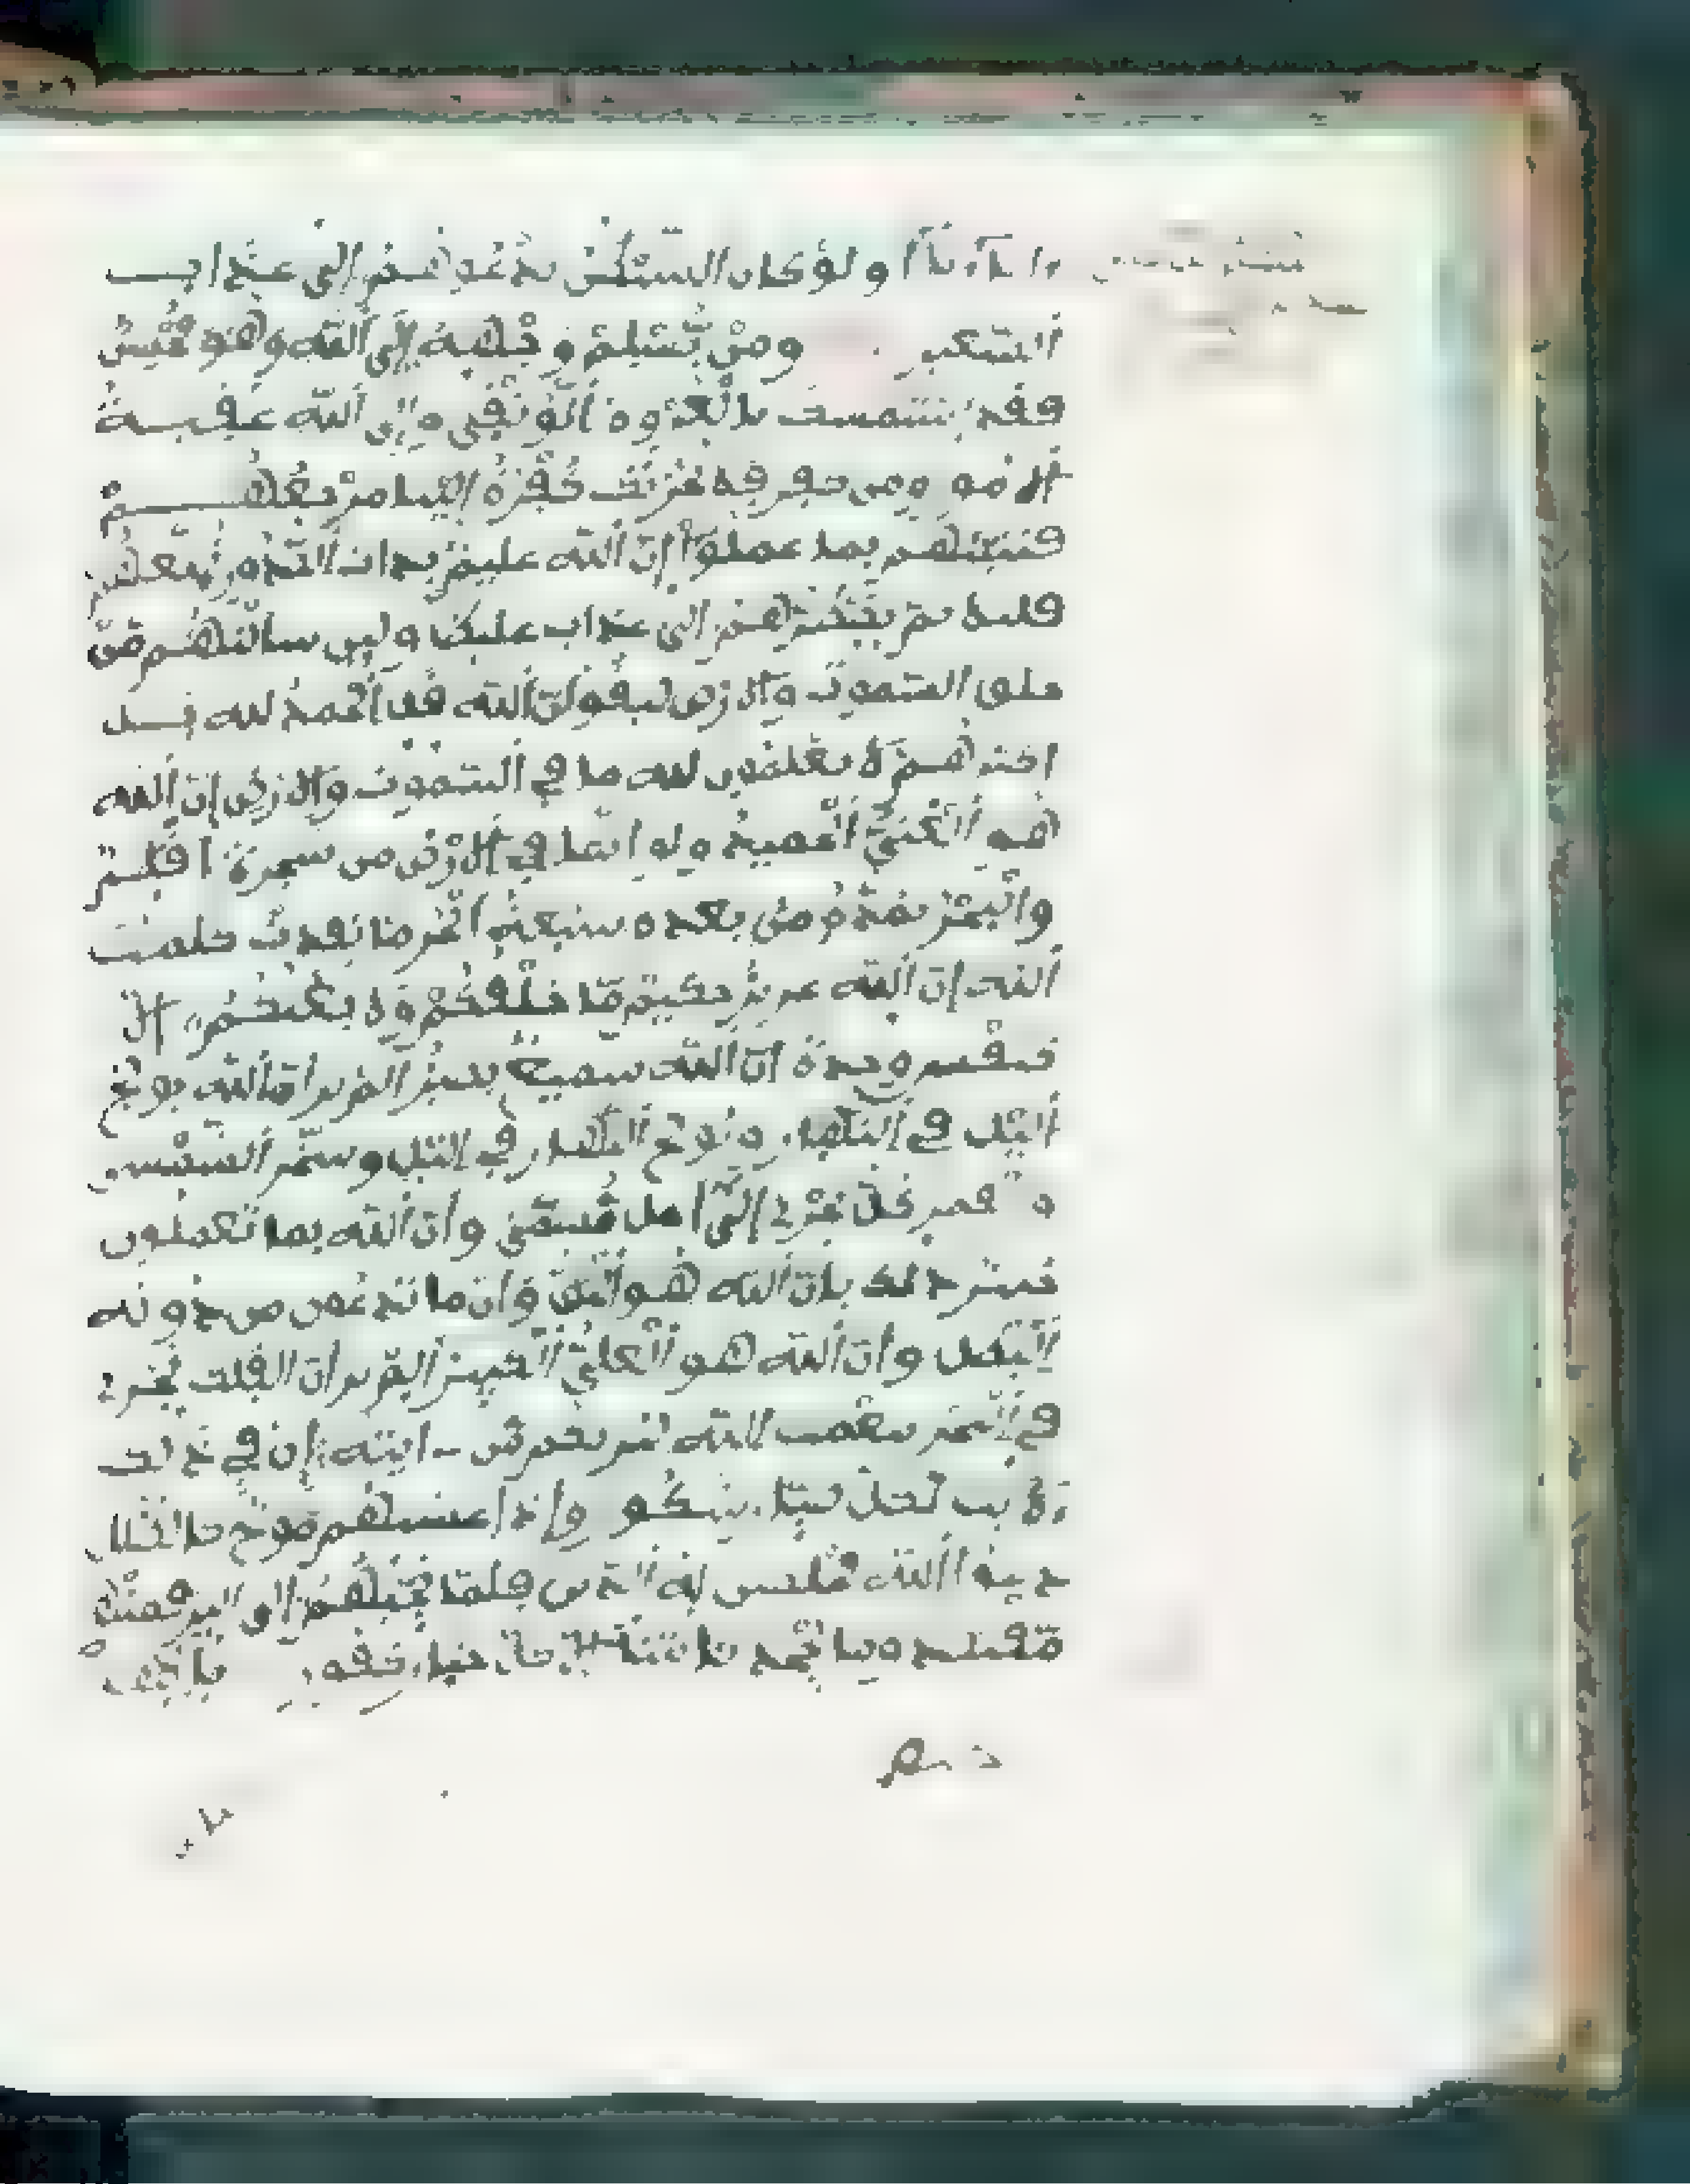 ءاباءنا أولو كان الشيطن يدعوهم إلى عذاب
السعير ومن يسلم وجهه إلى الله وهو محسن
فقد استمسك بالعروة الوثقى وإلى الله عقبة
الامور ومن كفر فلا يحزنك كفره إلينا مرجعهم
فننبئهم بما عملوا إن الله عليم بذات الصدور نمتعهم
قليلا ثم نضطرهم إلى عذاب غليظ ولين سألتهم من
خلق السموت والارض ليقولن الله قل الحمد لله بل
اكثرهم لا يعلمون لله ما في السموت والارض إن الله
هو الغني الحميد ولو انما في الارض من شجرة اقلم
والبحر يمده من بعده سبعة ابحر ما نفدت كلمت
الله إن الله عزيز حكيم ما خلقكم ولا بعثكم إلا
كنفس وحدة ان الله سميع بصير الم تر ان الله يولج
اليل في النهار ويولج النهار في اليل وسخر الشمس
والقمر كل يجري إلى أجل مسمى وأن الله بما تعملون
خبير ذلك بأن الله هو الحق وأن ما تدعون من دونه
البطل وأن الله هو العلي الكبير الم تر ان الفلك تجري
في البحر بنعمت الله ليريكم من ءايته إن في ذلك
لأيت لكل صبار شكور وإذا غشيهم موج كالظلل
دعوا الله مخلصين له الدين فلما نجيهم إلى البر فمنهم
مقتصد وما يجحد بأيتنا إلا كل ختار كفور يأيها